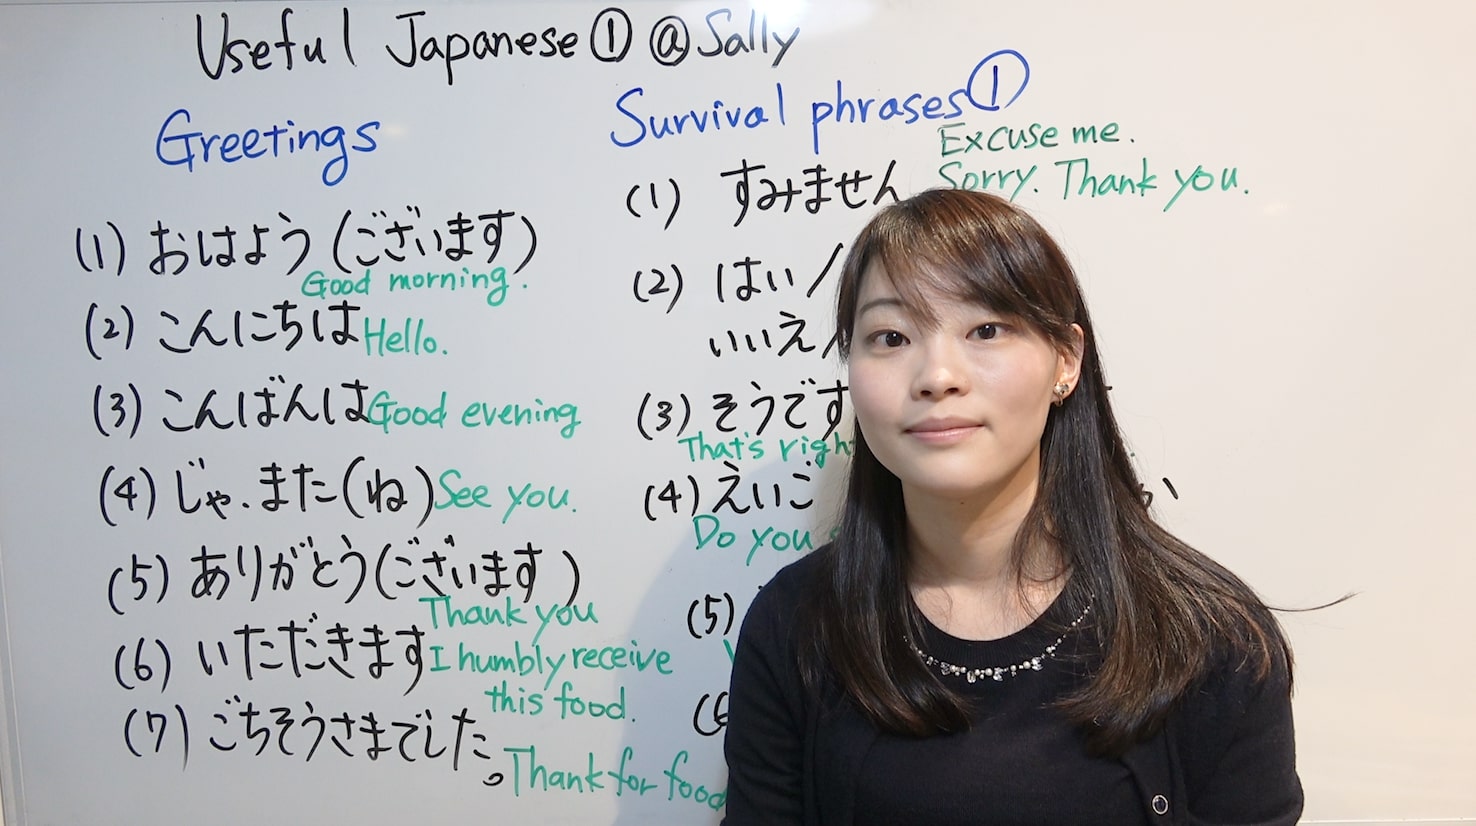 Useful Japanese① @Sally
Greetings
(1) おはよう(ございます)
Good morning.
(2) こんにちは Hello.
(3) こんばんは Good evening
(4) じゃ.また(ね) See you.
(5) ありがとう(ございます)
Thank you
(6) いただきます I humbly receive
this food.
(7) ごちそうさまでした。
Thank for food
Survival phrases①
Excuse me.
(1) すみません Sorry. Thank you.
(2) はい/
いいえ/
(3) そうです
That's right
(4) えいご か
Do you
(5)
(6